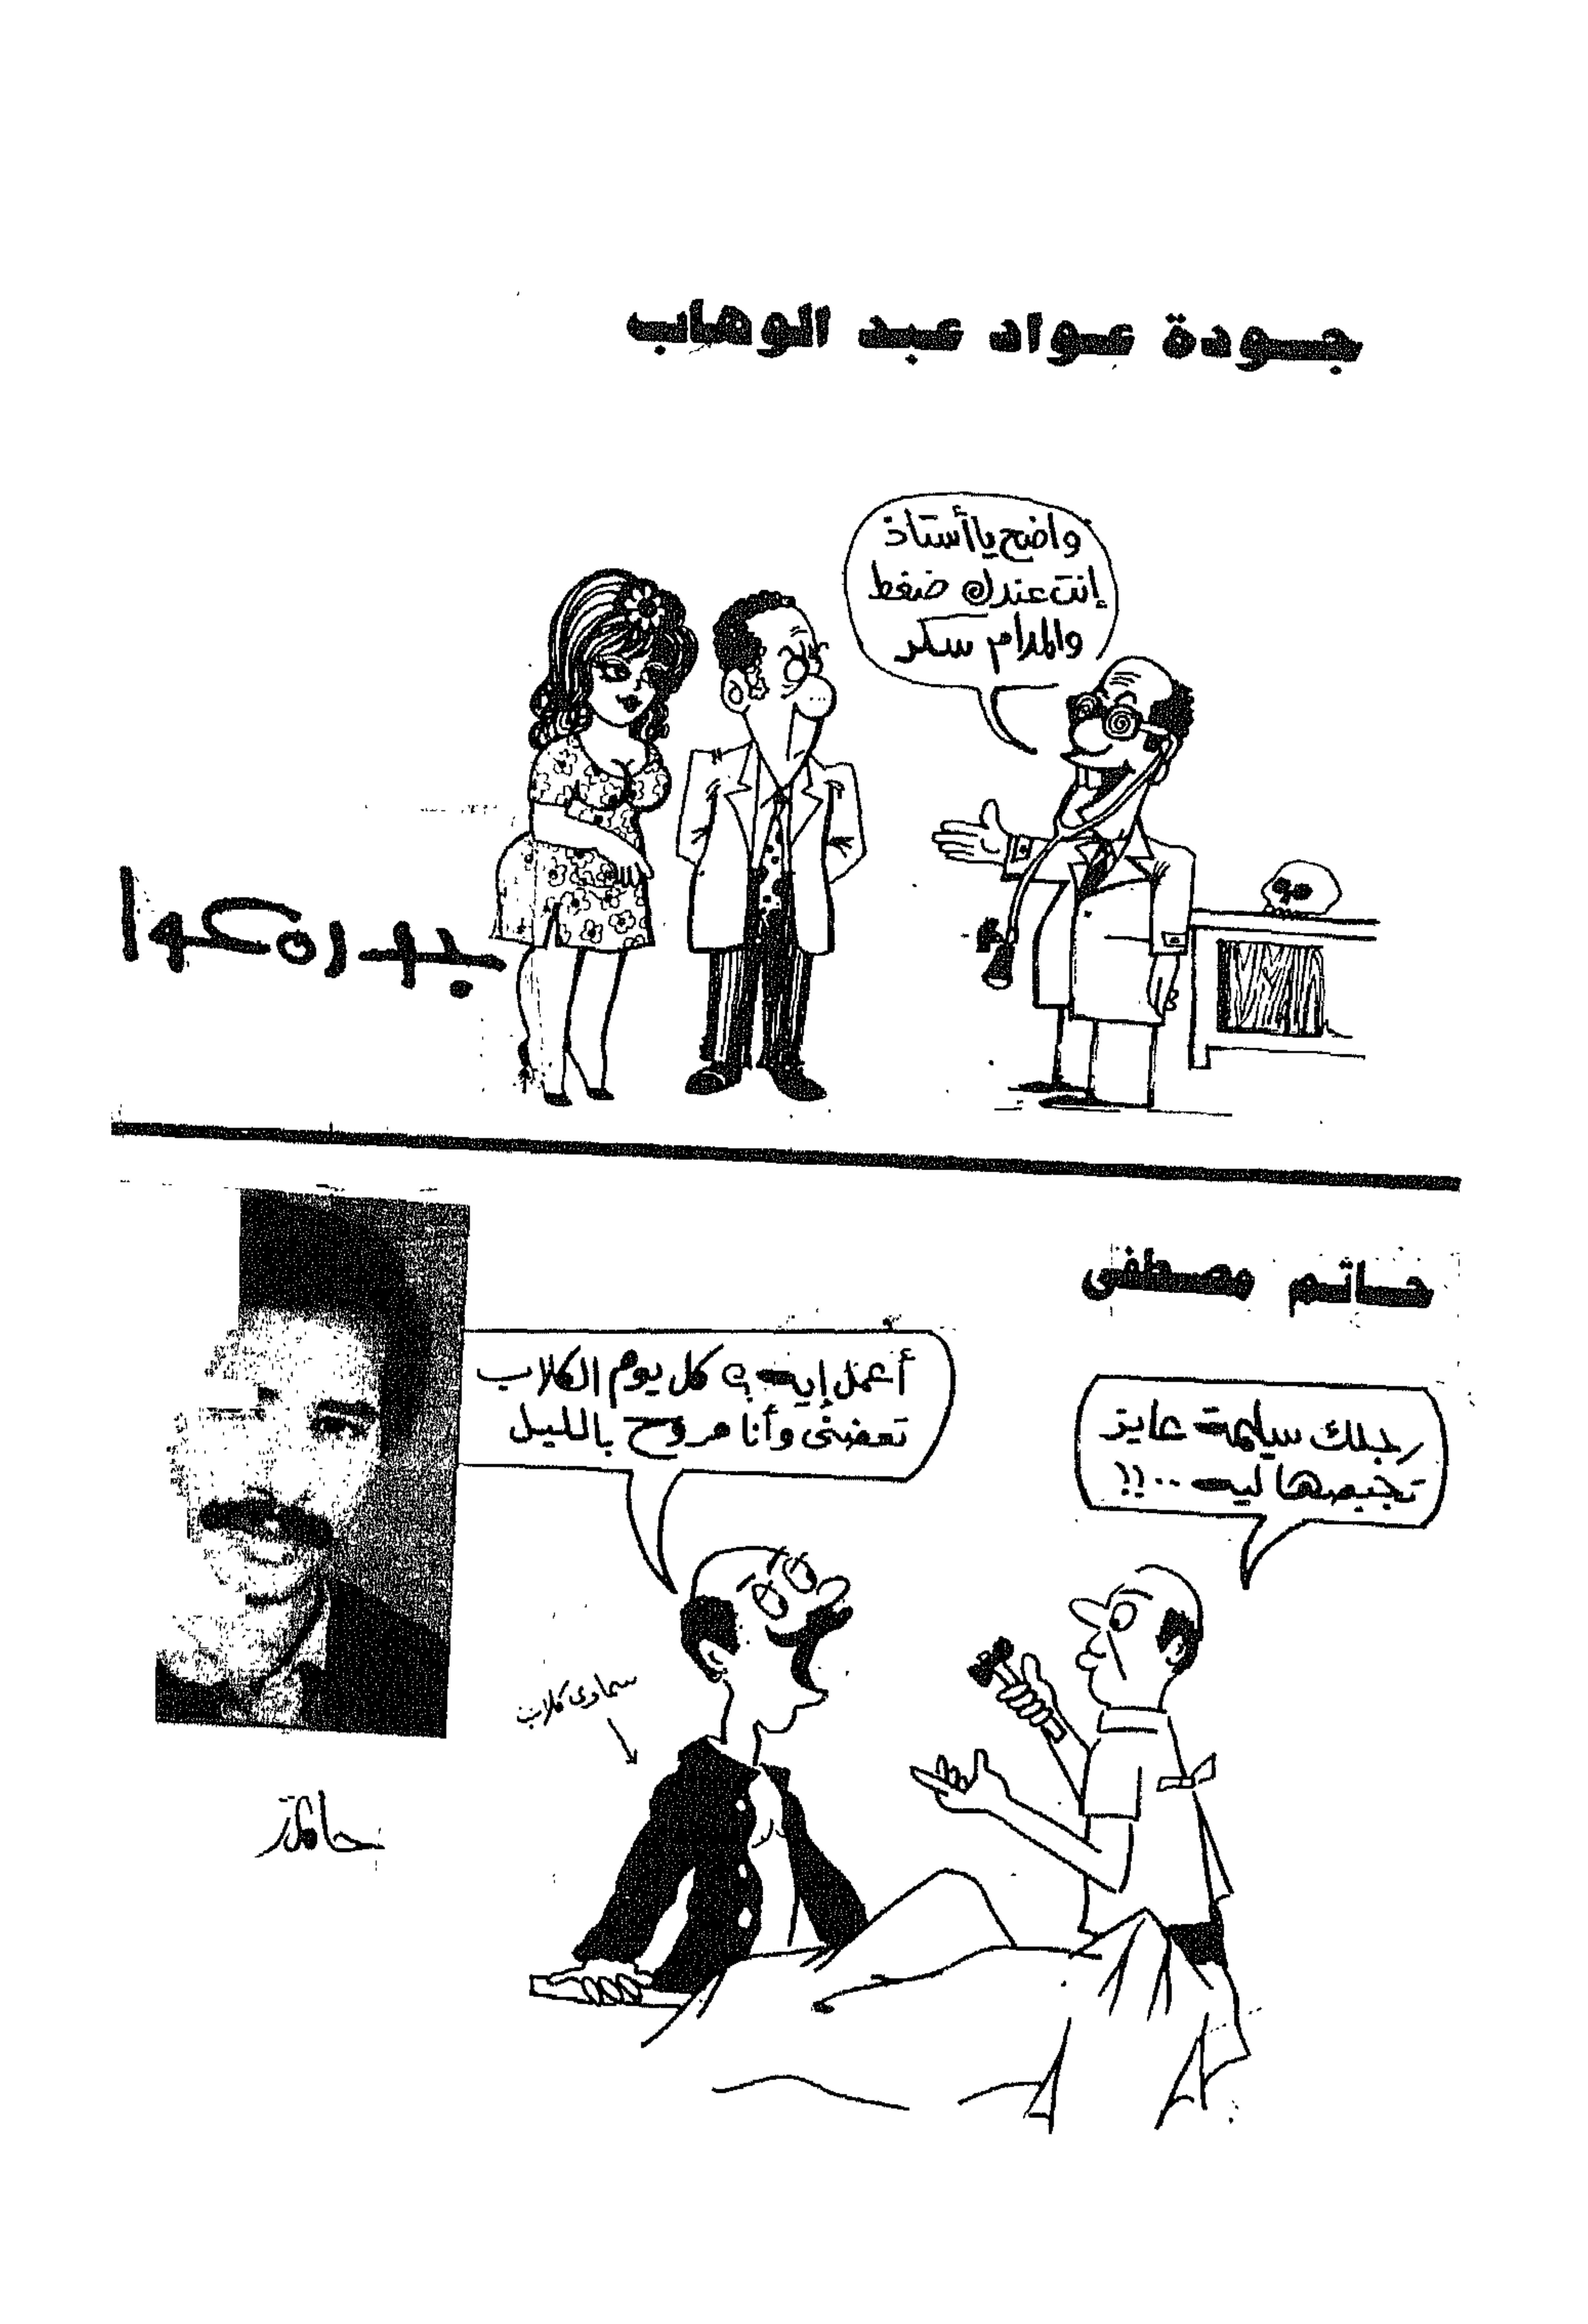 جودة عواد عبد الوهاب
واضح يا أستاذ
إنت عندك ضغط
والمدام سكر
حاتم مصطفى
رجلك سليمة عايز
تجبصها ليه ..!!
أعمل إيه ؟ كل يوم الكلاب
تعضنى وأنا مروح بالليل
سماوى كلاب